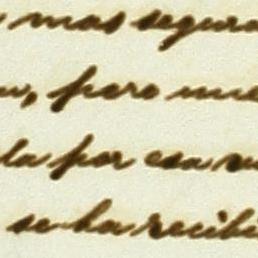 mas segura
pero mue
la por esa
se ha recibi